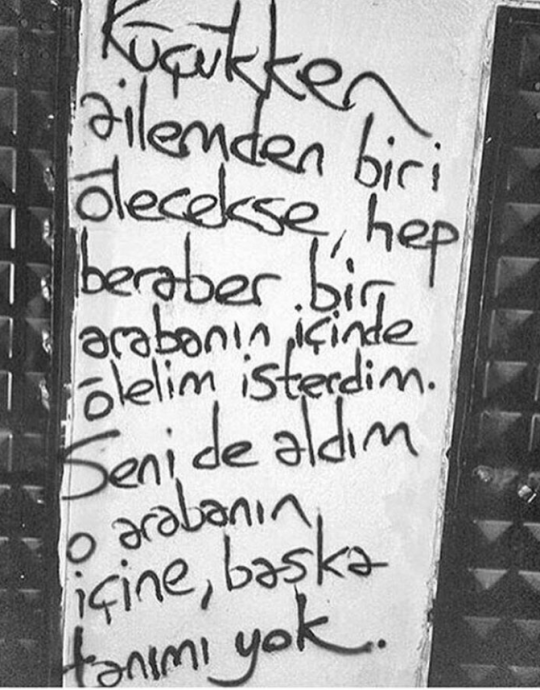 Küçükken
ailemden biri
ölecekse, hep
beraber bir
arabanın içinde
ölelim isterdim.
Seni de aldım
o arabanın
içine, başka
tanımı yok.